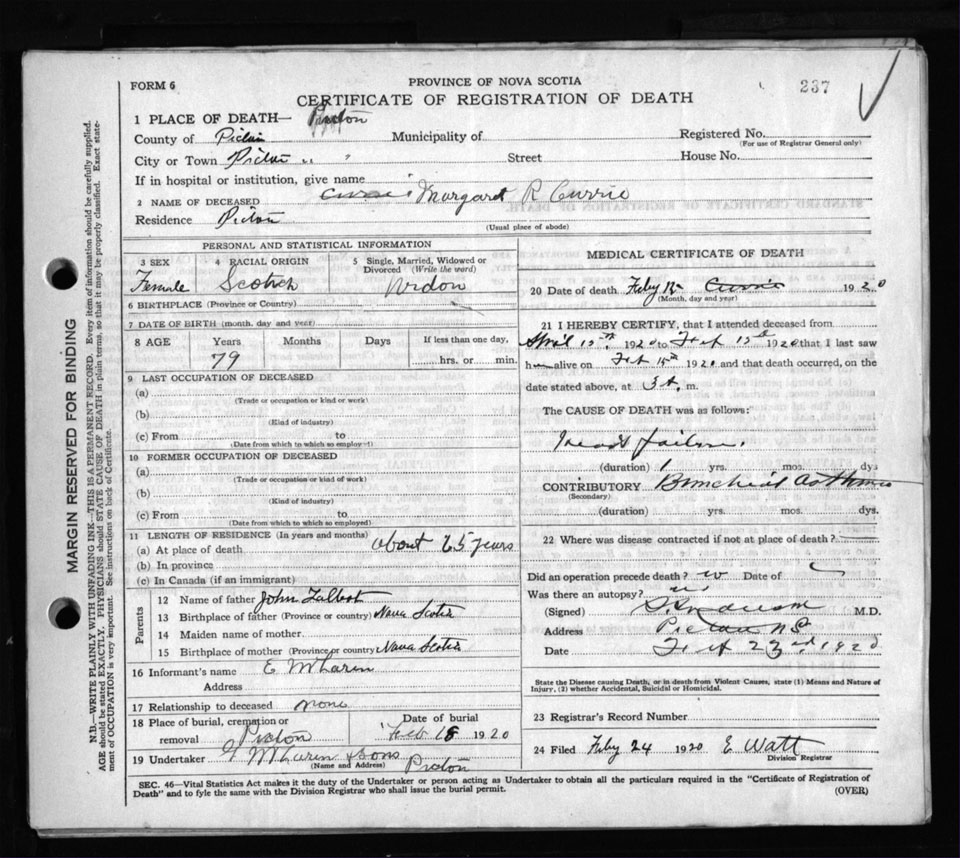 FORM 6
PROVINCE OF NOVA SCOTIA
237
CERTIFICATE OF REGISTRATION OF DEATH
1 PLACE OF DEATH— Pictou
County of Pictou Municipality of Registered No.
(For use of Registrar General only)
City or Town Pictou Street House No.
If in hospital or institution, give name
2 NAME OF DECEASED Currie Margaret R Currie
Residence Pictou
(Usual place of abode)
PERSONAL AND STATISTICAL INFORMATION
3 SEX Female
4 RACIAL ORIGIN Scotch
5 Single, Married, Widowed or Divorced (Write the word) Widow
6 BIRTHPLACE (Province or Country)
7 DATE OF BIRTH (month, day and year)
8 AGE Years Months Days If less than one day,
79 hrs. or min.
9 LAST OCCUPATION OF DECEASED
(a)
(Trade or occupation or kind or work)
(b)
(Kind of industry)
(c) From to
(Date from which to which so employed)
10 FORMER OCCUPATION OF DECEASED
(a)
(Trade or occupation or kind of work)
(b)
(Kind of industry)
(c) From to
(Date from which to which so employed)
11 LENGTH OF RESIDENCE (In years and months)
(a) At place of death about 25 years
(b) In province
(c) In Canada (if an immigrant)
Parents
12 Name of father John Talbot
13 Birthplace of father (Province or country) Nova Scotia
14 Maiden name of mother
15 Birthplace of mother (Province or country) Nova Scotia
16 Informant's name E McLaren
Address
17 Relationship to deceased none
18 Place of burial, cremation or removal Pictou
Date of burial Feb 18 1920
19 Undertaker McLaren & Sons Pictou
(Name and Address)
MEDICAL CERTIFICATE OF DEATH
20 Date of death Feby 15 Currie 1920
(Month, day and year)
21 I HEREBY CERTIFY, that I attended deceased from
April 15th 1920 to Feb 15th 1920 that I last saw
h alive on Feb 15th 1920 and that death occurred, on the
date stated above, at 3 A. m.
The CAUSE OF DEATH was as follows:
Heart failure.
(duration) 1 yrs. mos. dys.
CONTRIBUTORY Bronchial asthma
(Secondary)
(duration) yrs. mos. dys.
22 Where was disease contracted if not at place of death?
Did an operation precede death? no Date of
Was there an autopsy? no
(Signed) M.D.
Address Pictou N S
Date Feb 23rd 1920
State the Disease causing Death, or in death from Violent Causes, state (1) Means and Nature of
Injury, (2) whether Accidental, Suicidal or Homicidal.
23 Registrar's Record Number
24 Filed Feby 24 1920 E Watt
Division Registrar
SEC. 46—Vital Statistics Act makes it the duty of the Undertaker or person acting as Undertaker to obtain all the particulars required in the "Certificate of Registration of
Death" and to fyle the same with the Division Registrar who shall issue the burial permit.
(OVER)
MARGIN RESERVED FOR BINDING
N.B.—WRITE PLAINLY WITH UNFADING INK—THIS IS A PERMANENT RECORD. Every item of information should be carefully supplied.
AGE should be stated EXACTLY. PHYSICIANS should STATE CAUSE OF DEATH in plain terms, so that it may be properly classified. Exact state-
ment of OCCUPATION is very important. See instructions on back of Certificate.